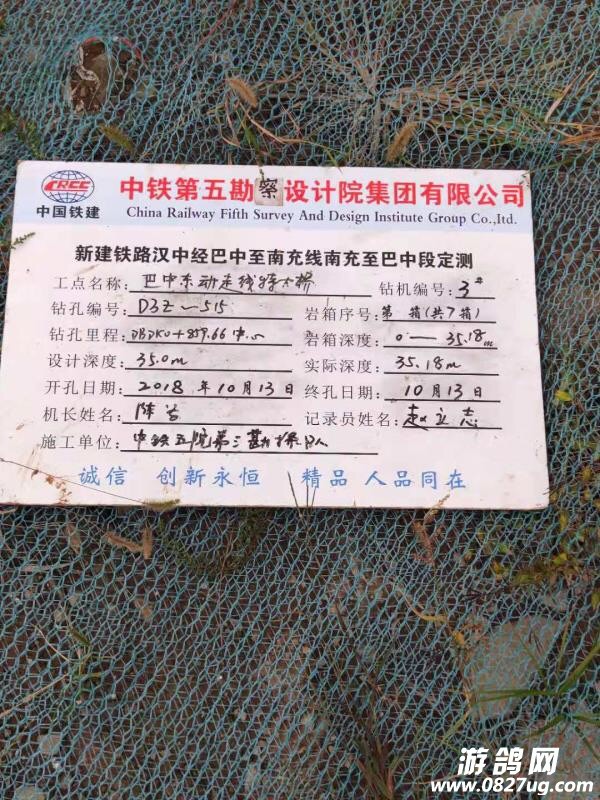 CRCC
中国铁建
中铁第五勘察设计院集团有限公司
China Railway Fifth Survey And Design Institute Group Co.,ltd.
新建铁路汉中经巴中至南充线南充至巴中段定测
工点名称：巴中东动走线特大桥 钻机编号：3#
钻孔编号：D3Z-515 岩箱序号：第 箱(共7箱)
钻孔里程：DBDK0+859.66中心 岩箱深度：0—35.18m
设计深度：35.0m 实际深度：35.18m
开孔日期：2018年10月13日 终孔日期：10月13日
机长姓名：陈 记录员姓名：赵立志
施工单位：中铁五院第三勘探队
诚信 创新永恒 精品 人品同在
游鸽网
www.0827ug.com